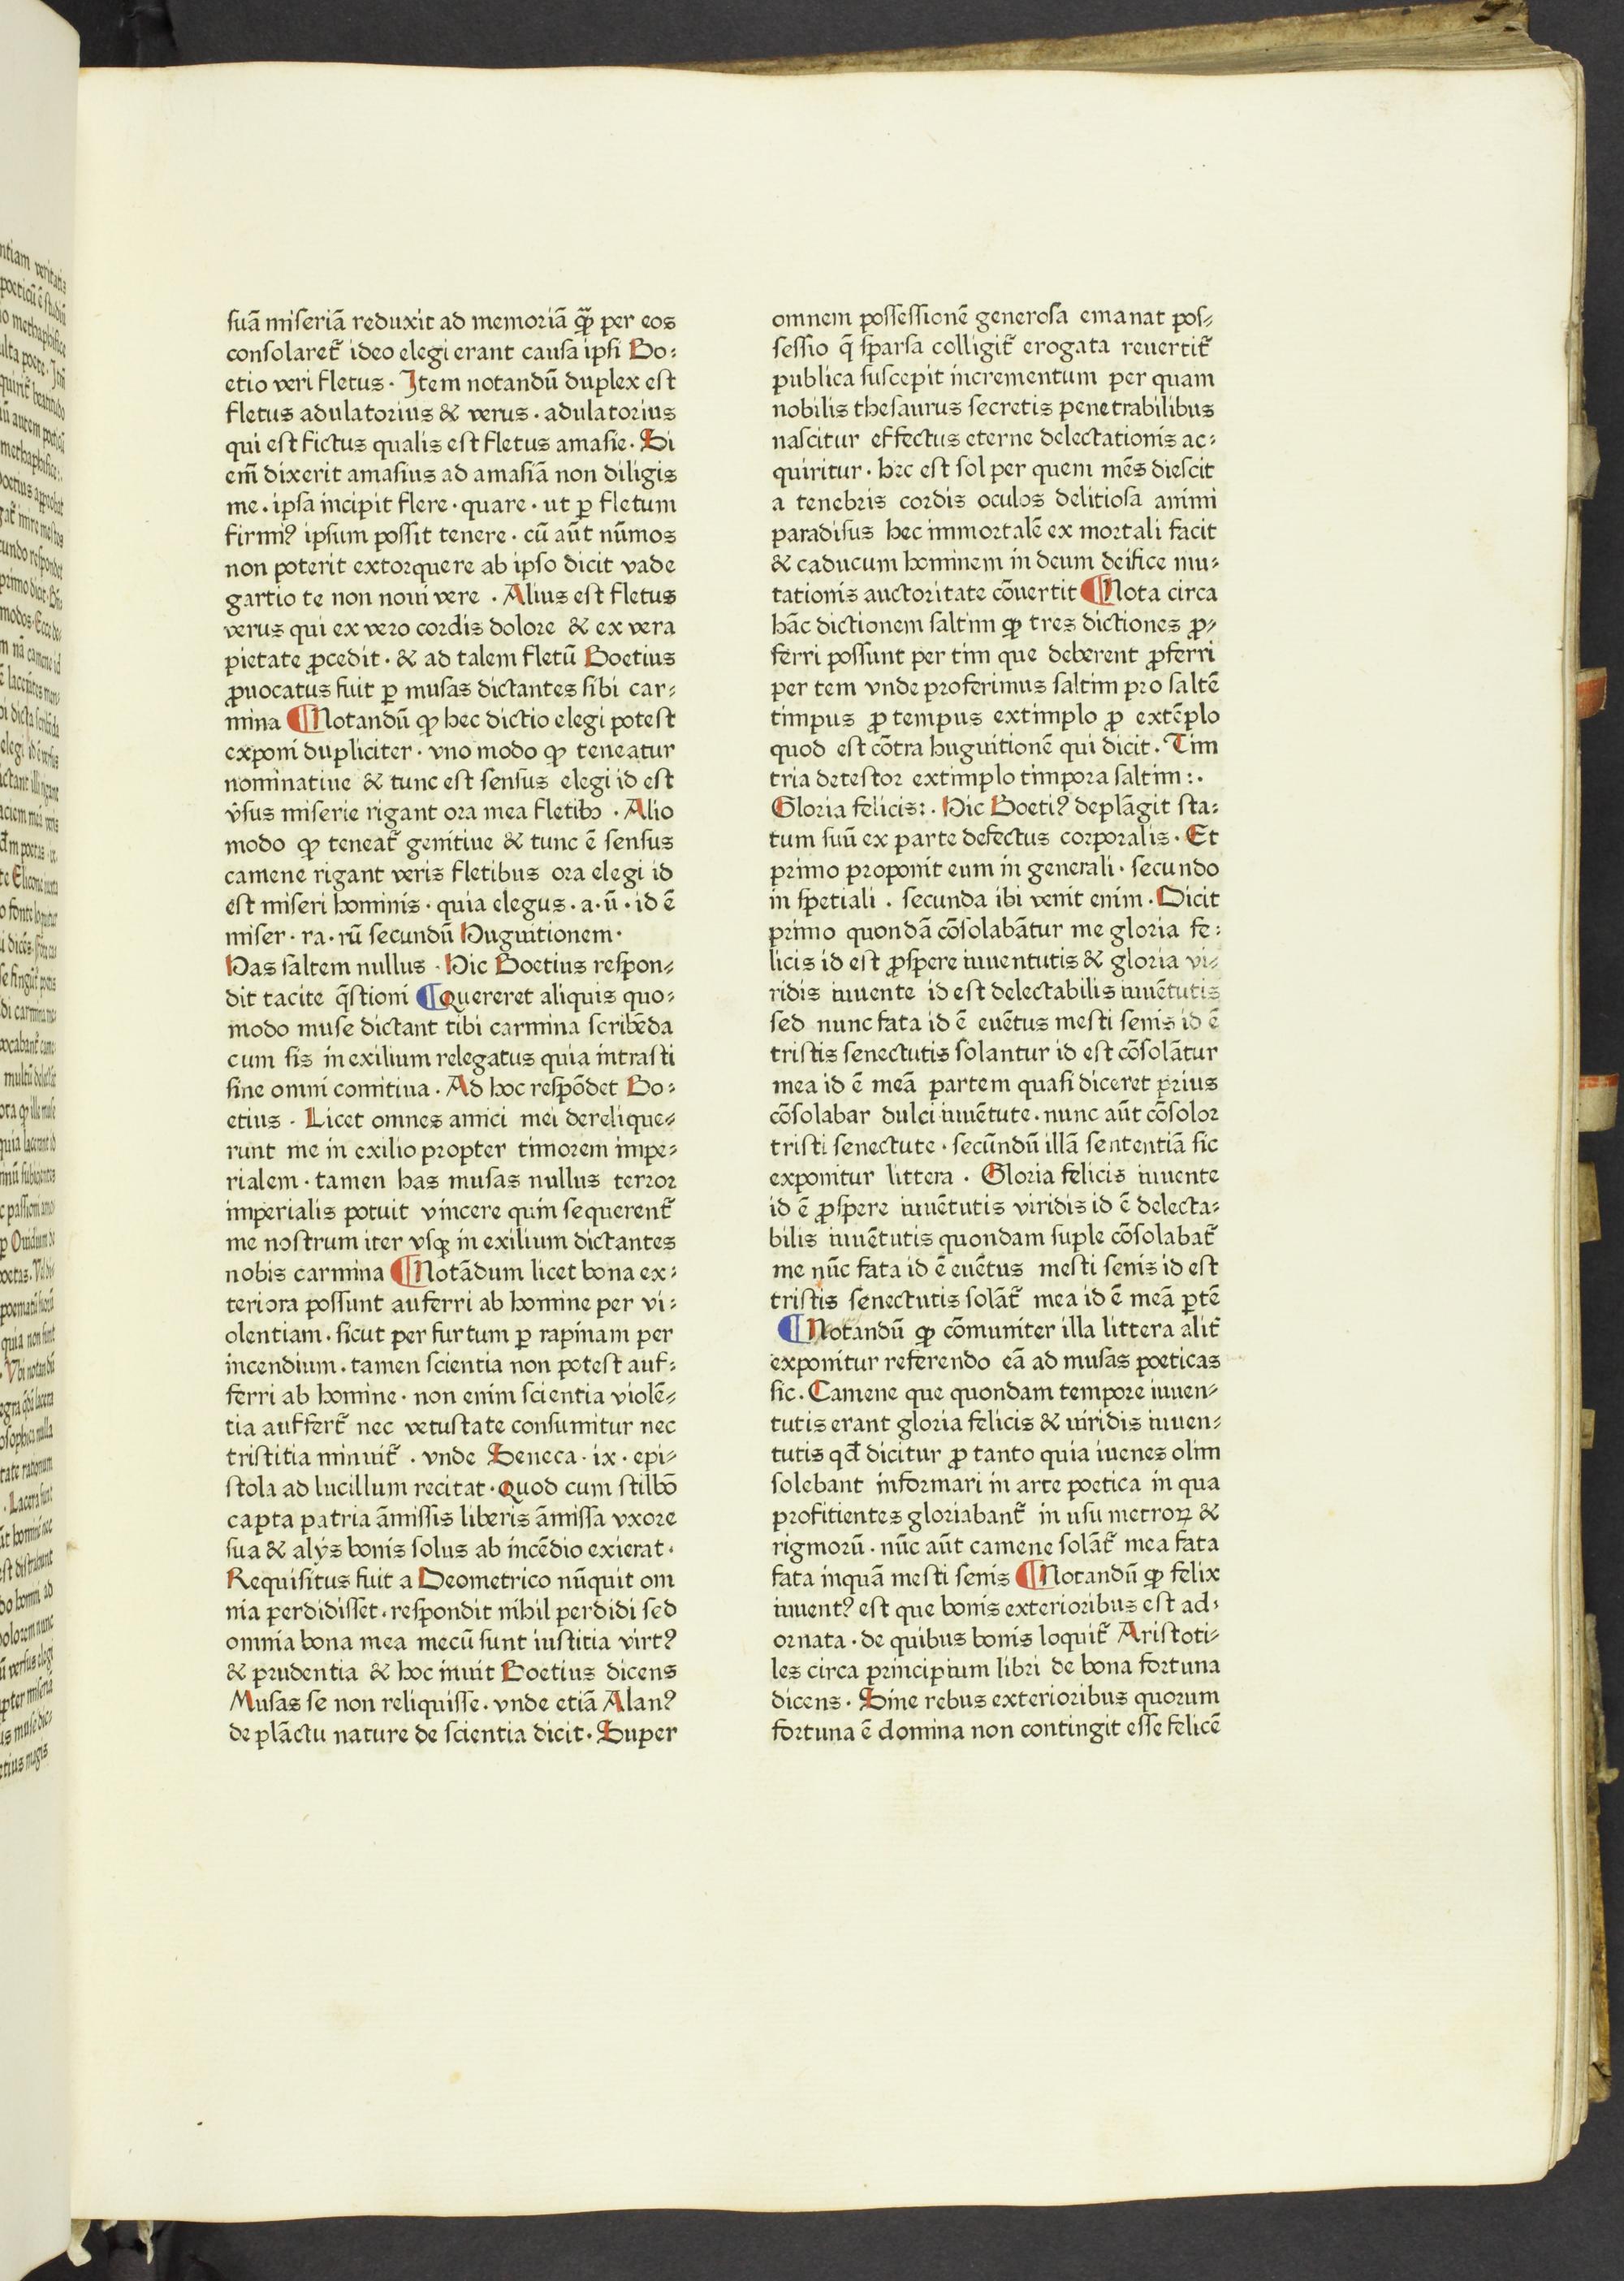 suā miseriā reduxit ad memoriā qꝫ per eos
consolaret᷑ ideo elegi erant causa ipsi Bo⸗
etio veri fletus · Item notandū duplex est
fletus adulatorius & verus · adulatorius
qui est fictus qualis est fletus amasie · Si
em̄ dixerit amasius ad amasiā non diligis
me · ipsa incipit flere · quare · ut ꝑ fletum
firmiꝰ ipsum possit tenere · cū aūt nūmos
non poterit extorquere ab ipso dicit vade
gartio te non noui vere · Alius est fletus
verus qui ex vero cordis dolore & ex vera
pietate ꝓcedit · & ad talem fletū Boetius
ꝓuocatus fuit ꝑ musas dictantes sibi car⸗
mina ¶Notandū ꝙ hec dictio elegi potest
exponi dupliciter · vno modo ꝙ teneatur
nominatiue & tunc est sensus elegi id est
v̓sus miserie rigant ora mea fletibꝫ · Alio
modo ꝙ teneat᷑ genitiue & tunc ē sensus
camene rigant veris fletibus ora elegi id
est miseri hominis · quia elegus · a · ū · id ē
miser · ra · rū secundū Huguitionem ·
Has saltem nullus · Hic Boetius respon⸗
dit tacite q̄stioni ¶Quereret aliquis quo⸗
modo muse dictant tibi carmina scribēda
cum sis in exilium relegatus quia intrasti
sine omni comitiua · Ad hoc respōdet Bo⸗
etius · Licet omnes amici mei derelique⸗
runt me in exilio propter timorem impe⸗
rialem · tamen has musas nullus terror
imperialis potuit vincere quin sequerent᷑
me nostrum iter vsqꝫ in exilium dictantes
nobis carmina ¶Notādum licet bona ex⸗
teriora possunt auferri ab homine per vi⸗
olentiam · sicut per furtum ꝑ rapinam per
incendium · tamen scientia non potest auf⸗
ferri ab homine · non enim scientia violē⸗
tia auffert᷑ nec vetustate consumitur nec
tristitia minuit᷑ · vnde Seneca · ix · epi⸗
stola ad lucillum recitat · Quod cum stilbō
capta patria āmissis liberis āmissa vxore
sua & alijs bonis solus ab incēdio exierat ·
Requisitus fuit a Deometrico nūquit om
nia perdidisset · respondit nihil perdidi sed
omnia bona mea mecū sunt iustitia virtꝰ
& prudentia & hoc inuit Boetius dicens
Musas se non reliquisse · vnde etiā Alanꝰ
de plāctu nature de scientia dicit · Super
omnem possessionē generosa emanat pos⸗
sessio q̄ sparsa colligit᷑ erogata reuertit᷑
publica suscepit incrementum per quam
nobilis thesaurus secretis penetrabilibus
nascitur effectus eterne delectationis ac⸗
quiritur · hec est sol per quem mēs diescit
a tenebris cordis oculos delitiosa animi
paradisus hec immortalē ex mortali facit
& caducum hominem in deum deifice mu⸗
tationis auctoritate cōuertit ¶Nota circa
hāc dictionem saltim ꝙ tres dictiones ꝓ⸗
ferri possunt per tim que deberent ꝓferri
per tem vnde proferimus saltim pro saltē
timpus ꝓ tempus extimplo ꝓ extēplo
quod est cōtra huguitionē qui dicit · Tim
tria detestor extimplo timpora saltim :·
Gloria felicis:· Hic Boetiꝰ deplāgit sta⸗
tum suū ex parte defectus corporalis · Et
primo proponit eum in generali · secundo
in spetiali · secunda ibi venit enim · Dicit
primo quondā cōsolabātur me gloria fe⸗
licis id est ꝓspere iuuentutis & gloria vi⸗
ridis iuuente id est delectabilis iuuētutis
sed nunc fata id ē euētus mesti senis id ē
tristis senectutis solantur id est cōsolātur
mea id ē meā partem quasi diceret prius
cōsolabar dulci iuuētute · nunc aūt cōsolor
tristi senectute · secūndū illā sententiā sic
exponitur littera · Gloria felicis iuuente
id ē ꝓspere iuuētutis viridis id ē delecta⸗
bilis iuuētutis quondam suple cōsolabat᷑
me nūc fata id ē euētus mesti senis id est
tristis senectutis solāt᷑ mea id ē meā ꝑtē
¶Notandū ꝙ cōmuniter illa littera alit᷑
exponitur referendo eā ad musas poeticas
sic · Camene que quondam tempore iuuen⸗
tutis erant gloria felicis & uiridis iuuen⸗
tutis qđ dicitur ꝓ tanto quia iuenes olim
solebant informari in arte poetica in qua
profitientes gloriabant᷑ in usu metroꝝ &
rigmorū · nūc aūt camene solāt᷑ mea fata
fata inquā mesti senis ¶Notandū ꝙ felix
iuuentꝰ est que bonis exterioribus est ad⸗
ornata · de quibus bonis loquit᷑ Aristoti⸗
les circa principium libri de bona fortuna
dicens · Sine rebus exterioribus quorum
fortuna ē domina non contingit esse felicē